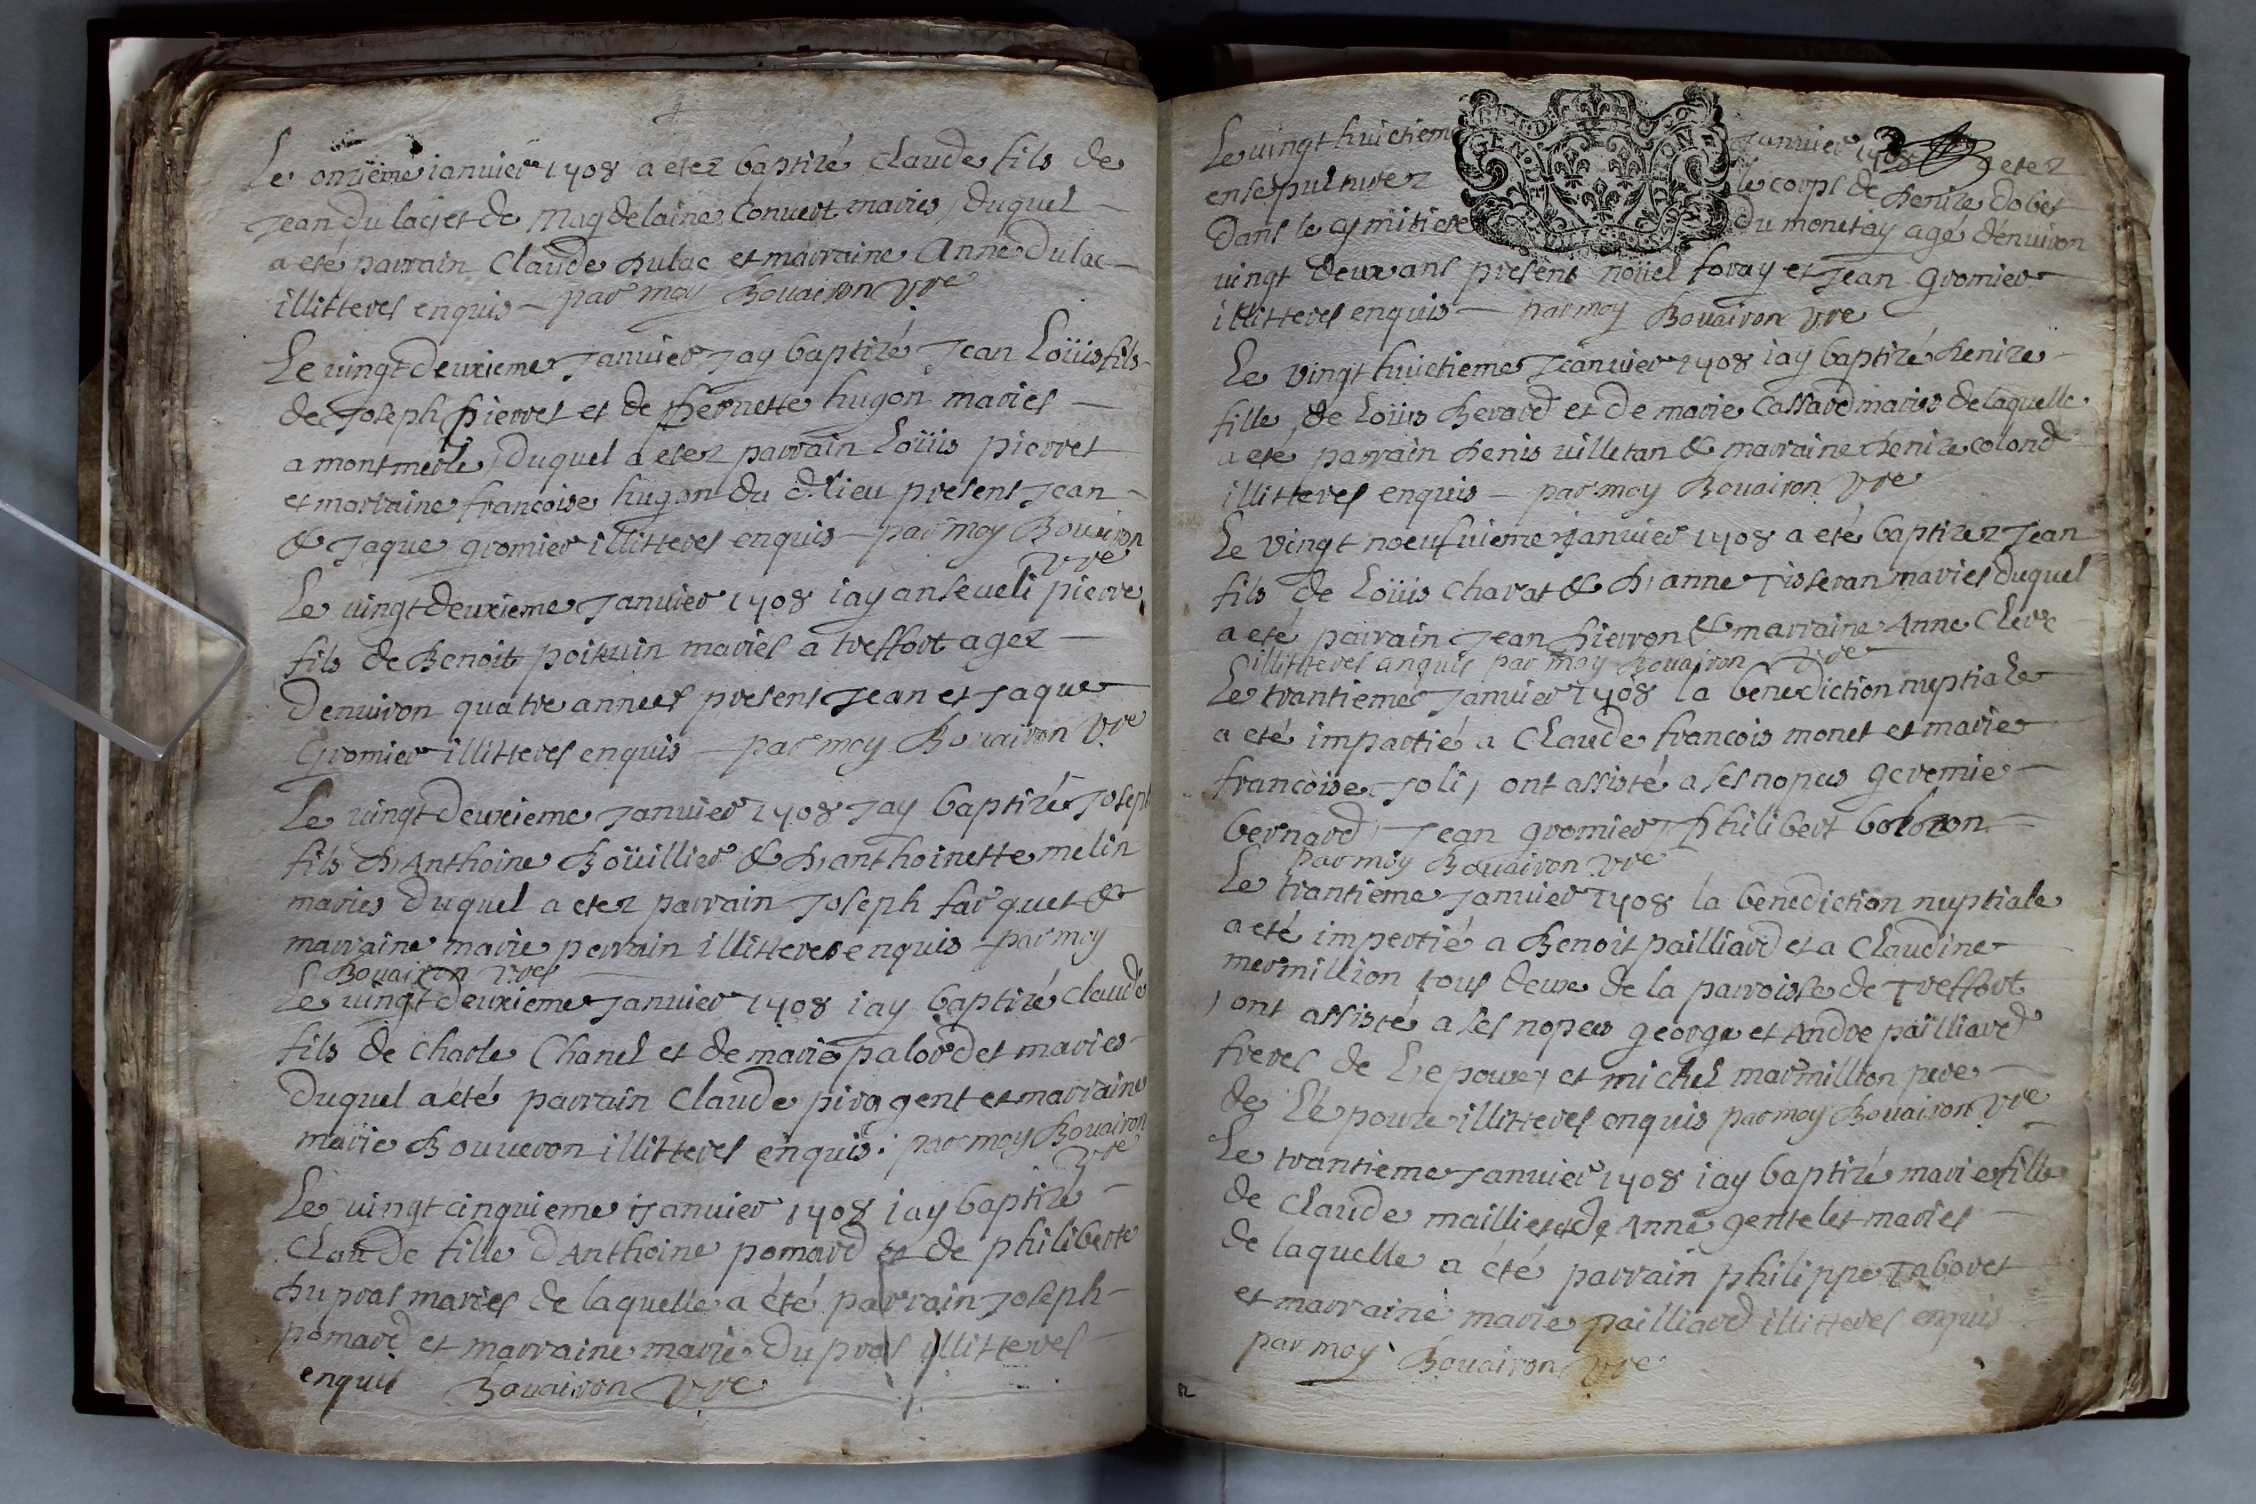 Le onzième ianvier 1708 a etez baptizé claude fils de
Jean du lac et de Magdelaine Convert maries, duquel
a eté parrain Claude Dulac et marraine Anne Dulac
illitteres enquis par moy Bouairon vre
Le vingt deuxieme Janvier Jay baptizé Jean Loüis fils
de Joseph pierret et de pernette hugon maries
a montmerle duquel a etez parrain Loüis pierret
et marraine francoise hugon du d. lieu present Jean
& Jaque gromier illitteres enquis par moy Bouairon
vre
Le vingt deuxieme Janvier 1708 iay anseveli pierre
fils de Benoit poitvin maries a treffort agez
denviron quatre annees present Jean et Jaque
Gromier illitteres enquis par moy Bouairon vre
Le vingt deuxieme Janvier 1708 Jay baptizé Joseph
fils D'Anthoine Boüillier & D'anthoinette melin
maries duquel a etez parrain Joseph farquet &
marraine marie perrain illitteres enquis par moy
Bouairon vre
Le vingt deuxieme Janvier 1708 iay baptizé claude
fils de charle Chanel et de marie palordet maries
duquel a été parrain Claude piragent et marraine
marie Bouveron illitteres enquis par moy Bouairon
vre
Le vingt cinquieme ianvier 1708 iay baptizé
Claude fille d'Anthoine pomard et de philiberte
Dupras maries de laquelle a été parrain Joseph
pomard et marraine marie Dupras illitteres
enquis Bouairon vre
Le vingt huictieme Janvier 1708 a etez
ensepulturez le corps de Denize dobet
Dans le cymitiere du monetay agé denviron
vingt deux ans present noüel foray et Jean gromier
illitteres enquis par moy Bouairon vre
Le vingt huictieme Jeanvier 1708 iay baptizé Denize
fille de Loüis Berard et de marie Cassard maries de laquelle
a eté parrain Denis villetan & marraine Denize colond
illitteres enquis par moy Bouairon vre
Le vingt noeufvieme Janvier 1708 a eté baptizez Jean
fils de Loüis Charat & D'anne Tisseran maries duquel
a eté parrain Jean pierron & marraine Anne Clerc
illitteres anquis par moy Bouairon vre
Le trantieme Janvier 1708 la benediction nuptiale
a eté impartié a Claude francois monet et marie
francoise Joli, ont assisté a ses nopces geremie
bernard, Jean gromier, philibert boloron
par moy Bouairon vre
Le trantieme Janvier 1708 la benediction nuptiale
a eté impertié a Benoit pailliard et a Claudine
mermillion tous deux de la parroisse de Treffort
, ont assisté a ses nopces george et Andre pailliard
freres de L'epoux, et michel marmillion pere
de L'épouze illitteres enquis par moy Bouairon vre
Le trantieme Janvier 1708 iay baptizé marie fille
de Claude maillet et de Anne gentelet maries
de laquelle a été parrain philippe Taboret
et marraine marie pailliard illitteres enquis
par moy Bouairon vre
82